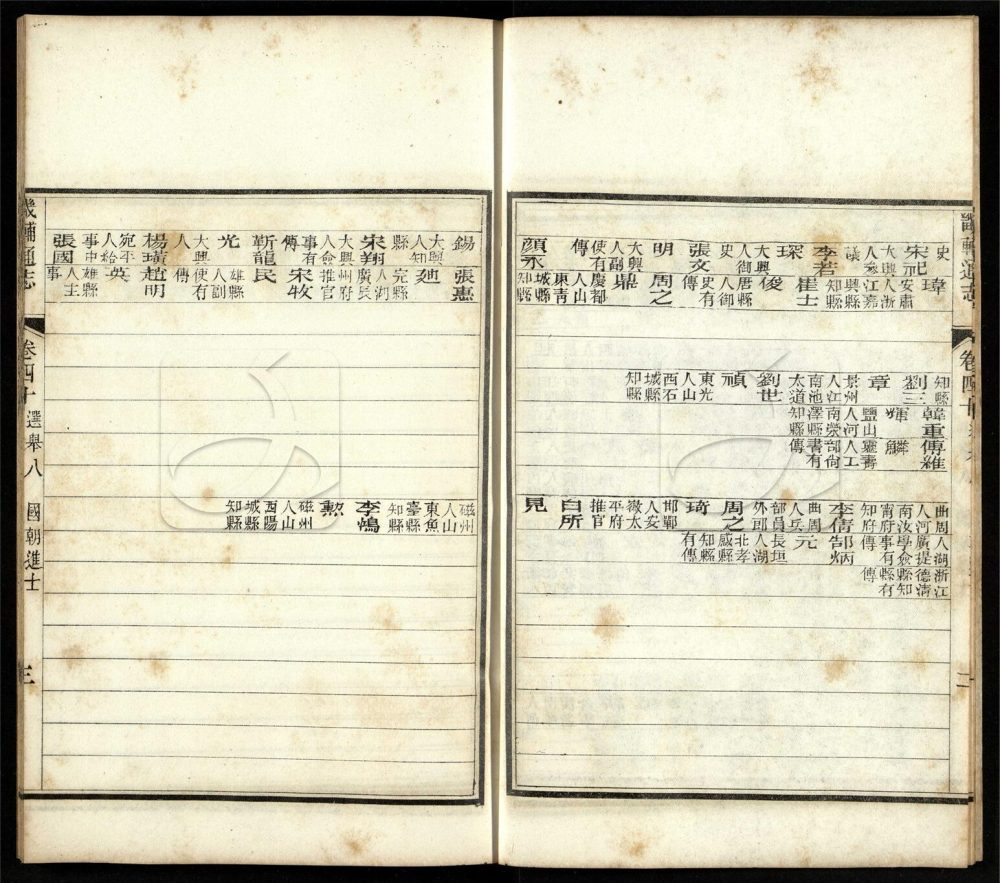 畿輔通志
卷四十
二
史
宋祀
大興
人參
議
李若
琛
大興
人御
史
張文
明
大興
人副
使有
傳
顏永
瑋
安肅
人浙
江嘉
興縣
知縣
崔士
俊
唐縣
人御
史有
傳
周之
鼎
慶都
人山
東青
城縣
知縣
知縣
劉三
章
景州
人江
南池
太道
劉世
禎
東光
人山
西石
城縣
知縣
韓重
輝
鹽山
人河
南滎
澤縣
知縣
傅維
鱗
靈壽
人工
部尚
書有
傳
曲周
人河
南汝
甯府
知府
李倩
曲周
人兵
部員
外郎
周之
琦
邯鄲
人安
徽太
平府
推官
白所
見
人湖
廣提
學僉
事有
傳
郜炳
元
長垣
人湖
北孝
感縣
知縣
有傳
浙江
德清
縣知
縣有
傳
錫
大興
人知
縣
宋翔
大興
人僉
事有
傳
靳龍
光
大興
人
楊璜
宛平
人給
事中
張國
張惠
廸
完縣
人湖
廣辰
州府
推官
宋牧
民
雄縣
人副
使有
傳
趙明
英
雄縣
人主
事
磁州
人山
東魚
臺縣
知縣
勲
磁州
人山
西陽
城縣
知縣
畿輔通志
卷四十
選舉八
國朝進士
三